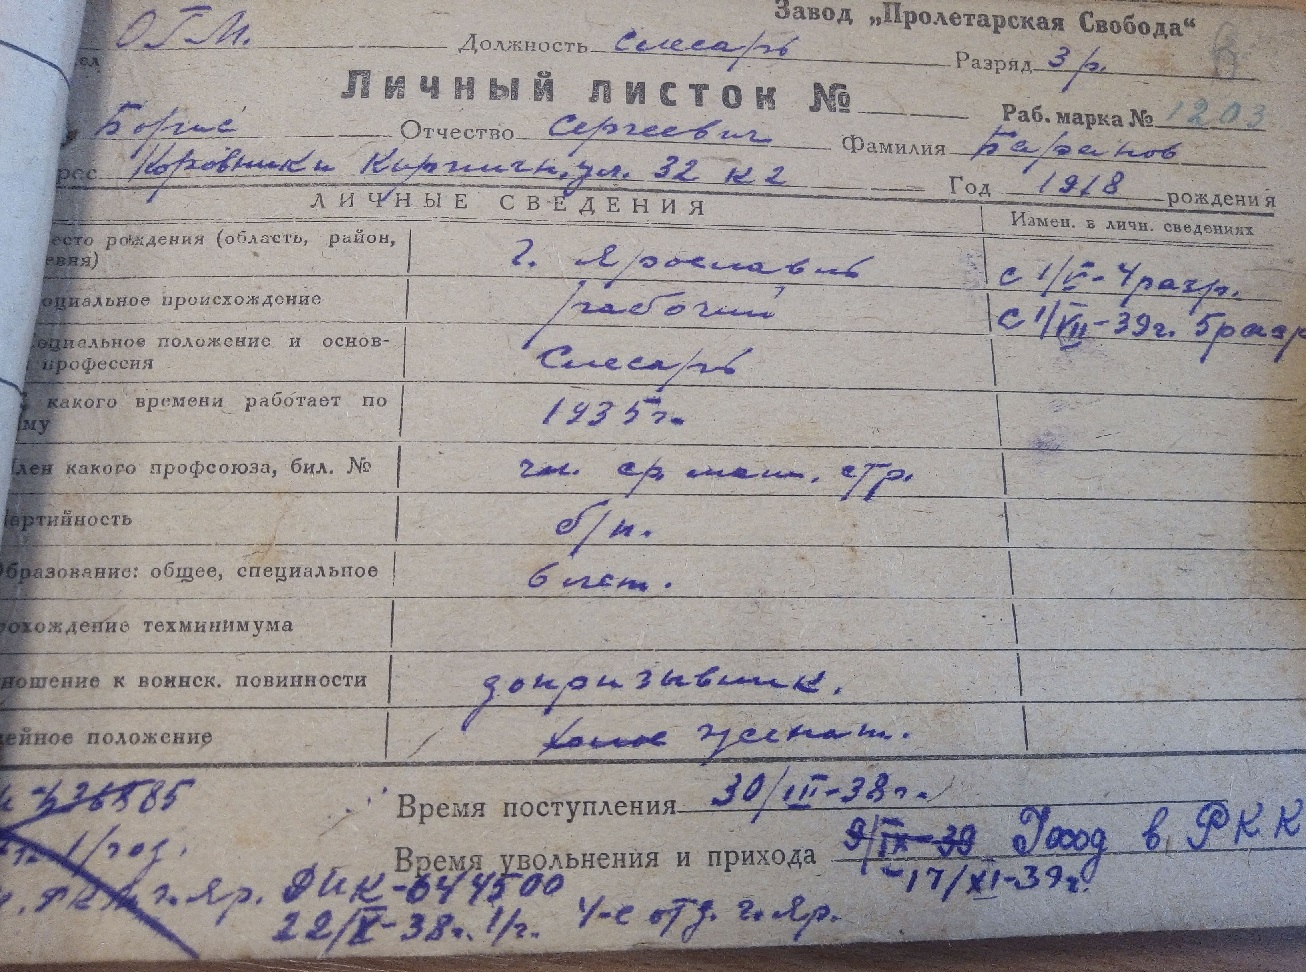 Завод „Пролетарская Свобода“
ел О.Г.М. Должность Слесарь Разряд 3 р.
Личный листок №
Раб. марка № 1203
Борис Отчество Сергеевич Фамилия Баранов
рес Коровники Кирпичн. ул. 32 к 2 Год 1918 рождения
ЛИЧНЫЕ СВЕДЕНИЯ Измен. в личн. сведениях
есто рождения (область, район, г. Ярославль с 1/V-4 разр.
евня)
оциальное происхождение рабочий с 1/VII-39г. 5 разр
оциальное положение и основ- Слесарь
профессия
какого времени работает по 1935 г.
му
лен какого профсоюза, бил. № чл. ср. маш. стр.
артийность б/п.
Образование: общее, специальное 6 лет.
охождение техминимума
ношение к воинск. повинности допризывник.
ейное положение холос женат.
Время поступления 30/III-38 г.
Время увольнения и прихода 9/IX-39 Уход в РККА
1/год. -17/XI-39г.
г. Яр. 644500
22/X-38г. 1/г. 4-е отд. г. Яр.